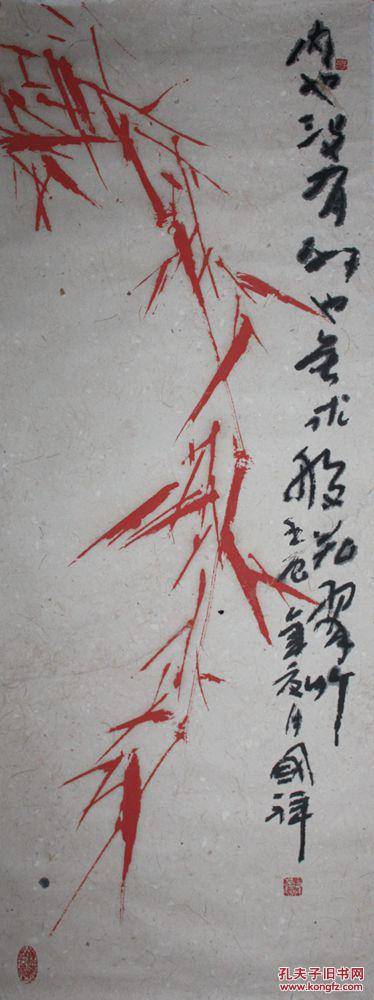 内也没有外也无求般若翠竹
壬辰年夏月國祥
孔夫子旧书网
www.kongfz.com